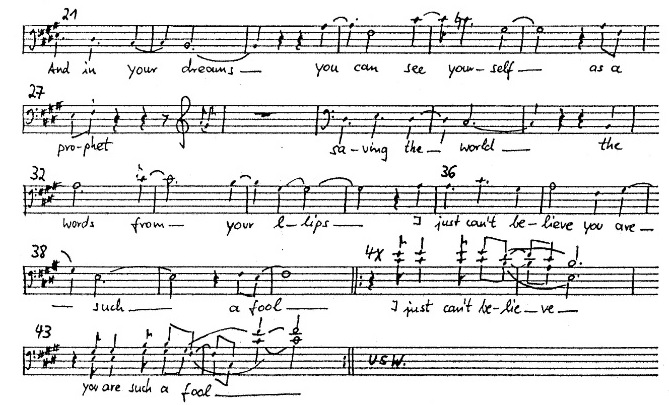 21
And in your dreams — you can see your-self — as a
27
pro-phet sa-ving the — world — the
32 36
words from — your l-lips — I just can't be-lieve you are —
38 4x
— such — a fool — I just can't be-lie-ve —
43
you are such a fool — U.S.W.